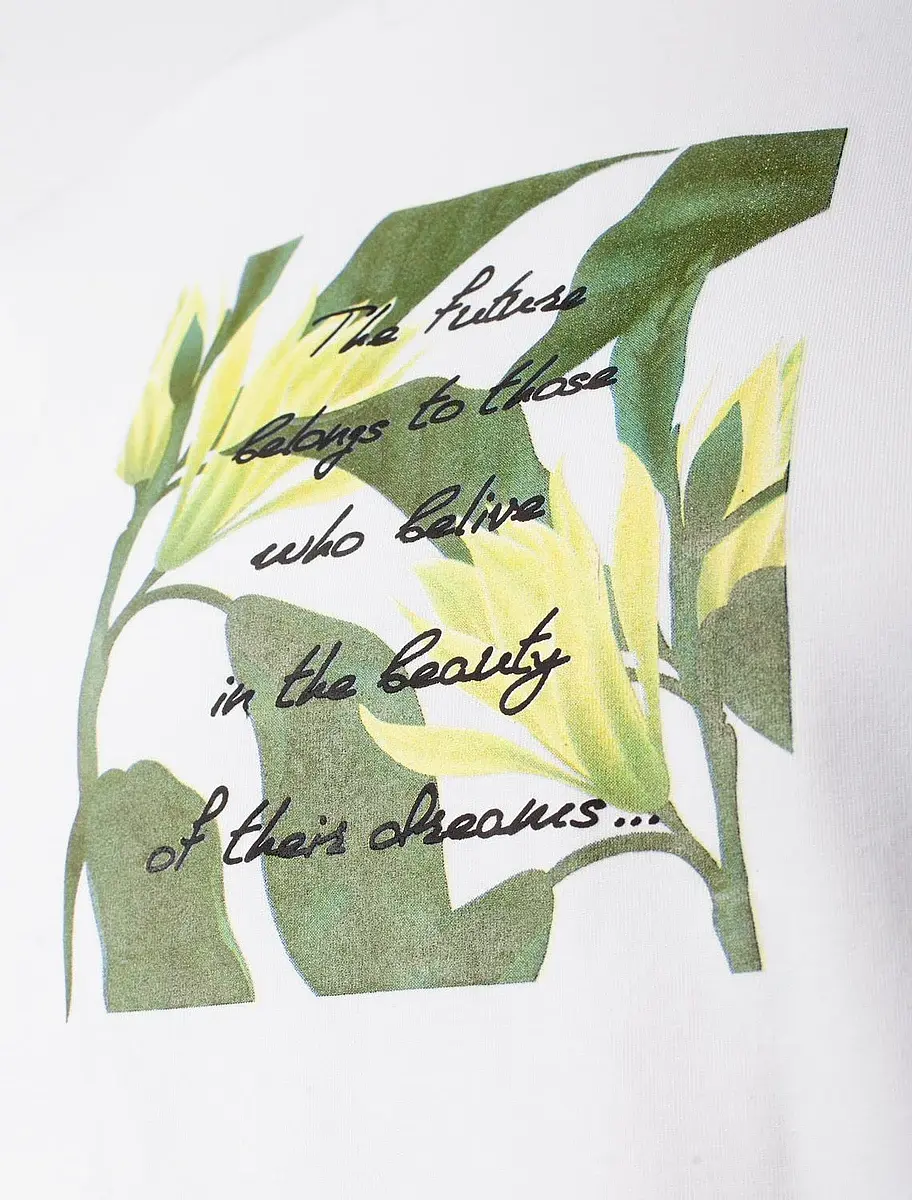 The future
belongs to those
who belive
in the beauty
of their dreams...